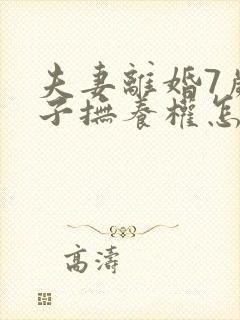 夫妻離婚7歲
子撫養權怎
高濤